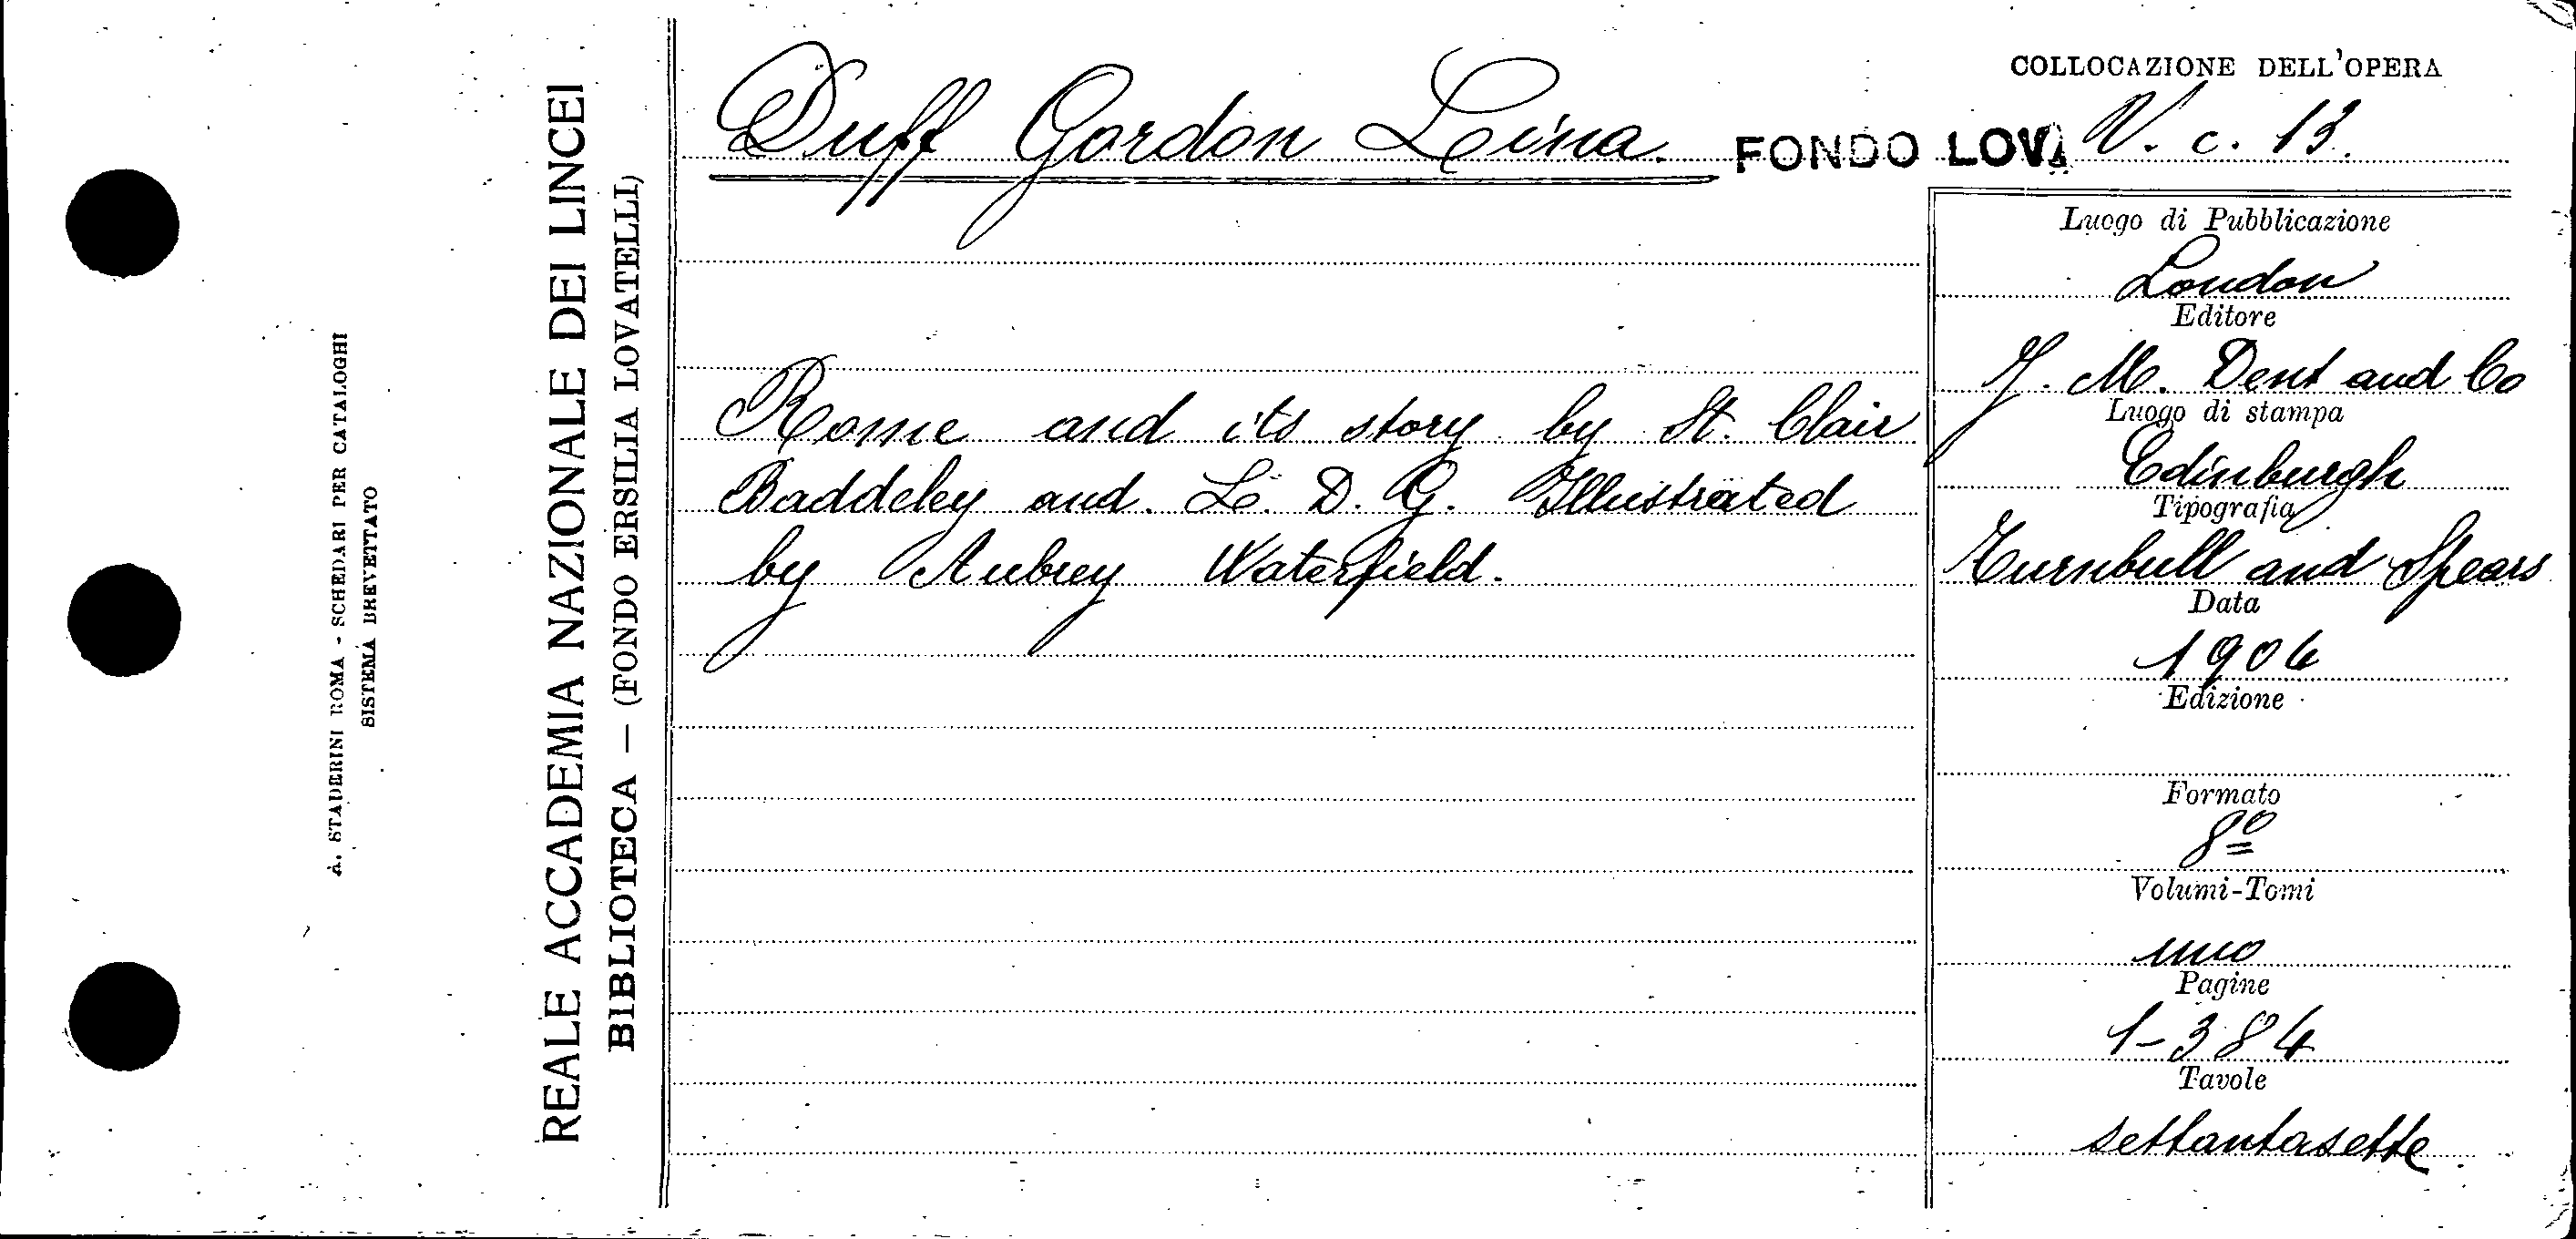 A. STADERINI ROMA - SCHEDARI PER CATALOGHI
SISTEMA BREVETTATO
REALE ACCADEMIA NAZIONALE DEI LINCEI
BIBLIOTECA — (FONDO ERSILIA LOVATELLI)
Duff Gordon Leina.
FONDO LOVA
Rome and its story by St. Clair
Baddeley and L. D. G. Illustrated
by Aubrey Waterfield.
COLLOCAZIONE DELL'OPERA
V. c. 13.
Luogo di Pubblicazione
London
Editore
J. M. Dent and Co
Luogo di stampa
Edinburgh
Tipografia
Turnbull and Spears
Data
1904
Edizione
Formato
8º
Volumi-Tomi
uno
Pagine
1-384
Tavole
settantasette